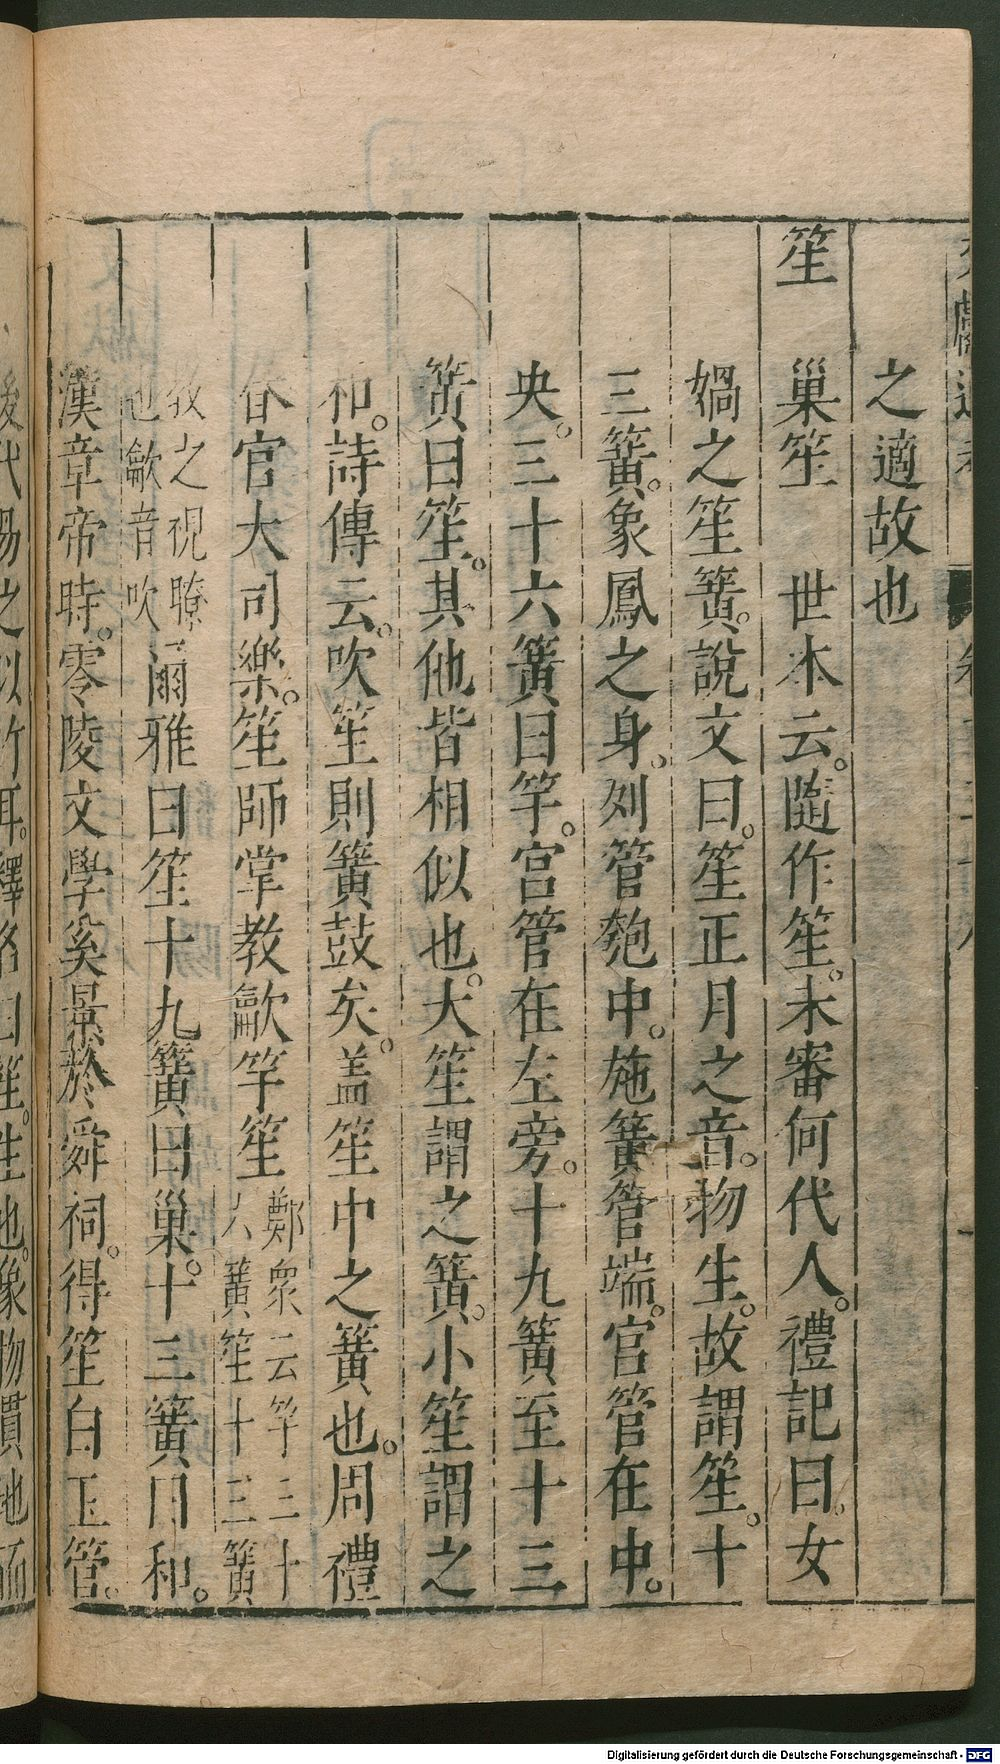 之適故也
笙　巢笙　世本云。隨作笙。未審何代人。禮記曰。女
媧之笙簧。說文曰。笙正月之音。物生。故謂笙。十
三簧。象鳳之身。列管匏中。施簧管端。宮管在中
央。三十六簧曰竽。宮管在左旁。十九簧至十三
簧曰笙。其他皆相似也。大笙謂之簧。小笙謂之
和。詩傳云。吹笙則簧鼓矣。盖笙中之簧也。周禮
春官大司樂。笙師掌教龡竽笙 鄭衆云竽三十
六簧笙十三簧
教之視瞭
也龡音吹 爾雅曰笙十九簧曰巢。十三簧曰和。
漢章帝時。零陵文學奚景於舜祠。得笙白玉管。
後代易之以竹耳。釋名曰笙。生也。象物貫地而
Digitalisierung gefördert durch die Deutsche Forschungsgemeinschaft - DFG